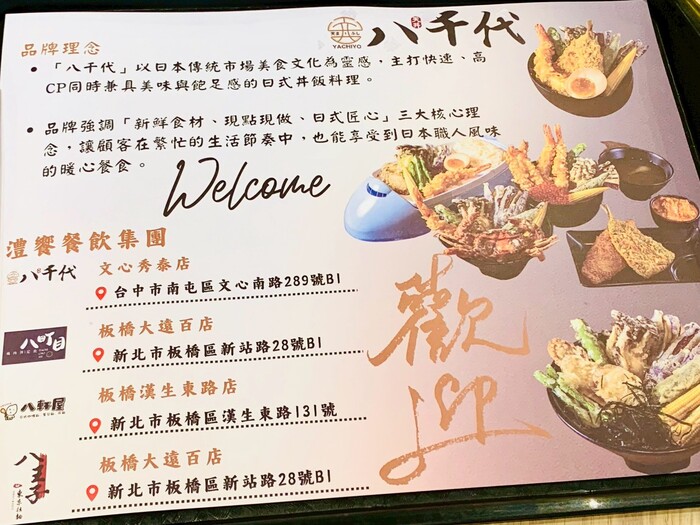 品牌理念
YACHIYO
八千代
• 「八千代」以日本傳統市場美食文化為靈感，主打快速、高
CP同時兼具美味與飽足感的日式丼飯料理。
• 品牌強調「新鮮食材、現點現做、日式匠心」三大核心理
念，讓顧客在繁忙的生活節奏中，也能享受到日本職人風味
的暖心餐食。
Welcome
歡迎
澧饗餐飲集團
八千代
文心秀泰店
台中市南屯區文心南路289號B1
八町目
板橋大遠百店
新北市板橋區新站路28號B1
八軒屋
板橋漢生東路店
新北市板橋區漢生東路131號
八王子
板橋大遠百店
新北市板橋區新站路28號B1